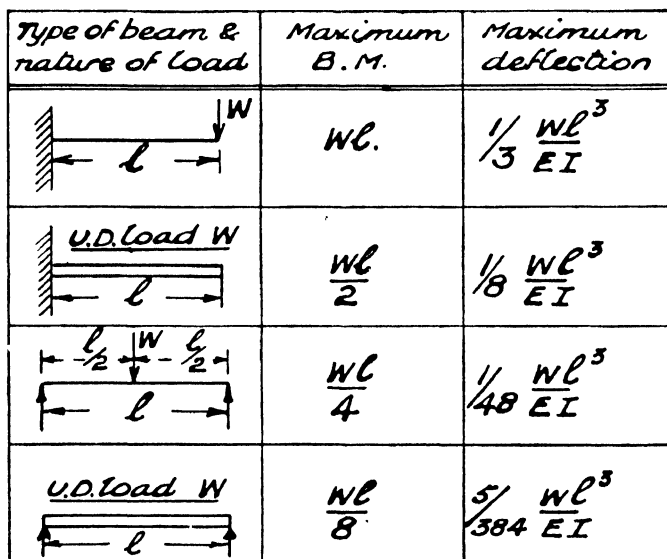 Type of beam & nature of load | Maximum B.M. | Maximum deflection
W
l
Wl.
1/3 Wl³/EI
U.D. load W
l
Wl/2
1/8 Wl³/EI
l/2 W l/2
l
Wl/4
1/48 Wl³/EI
U.D. load W
l
Wl/8
5/384 Wl³/EI